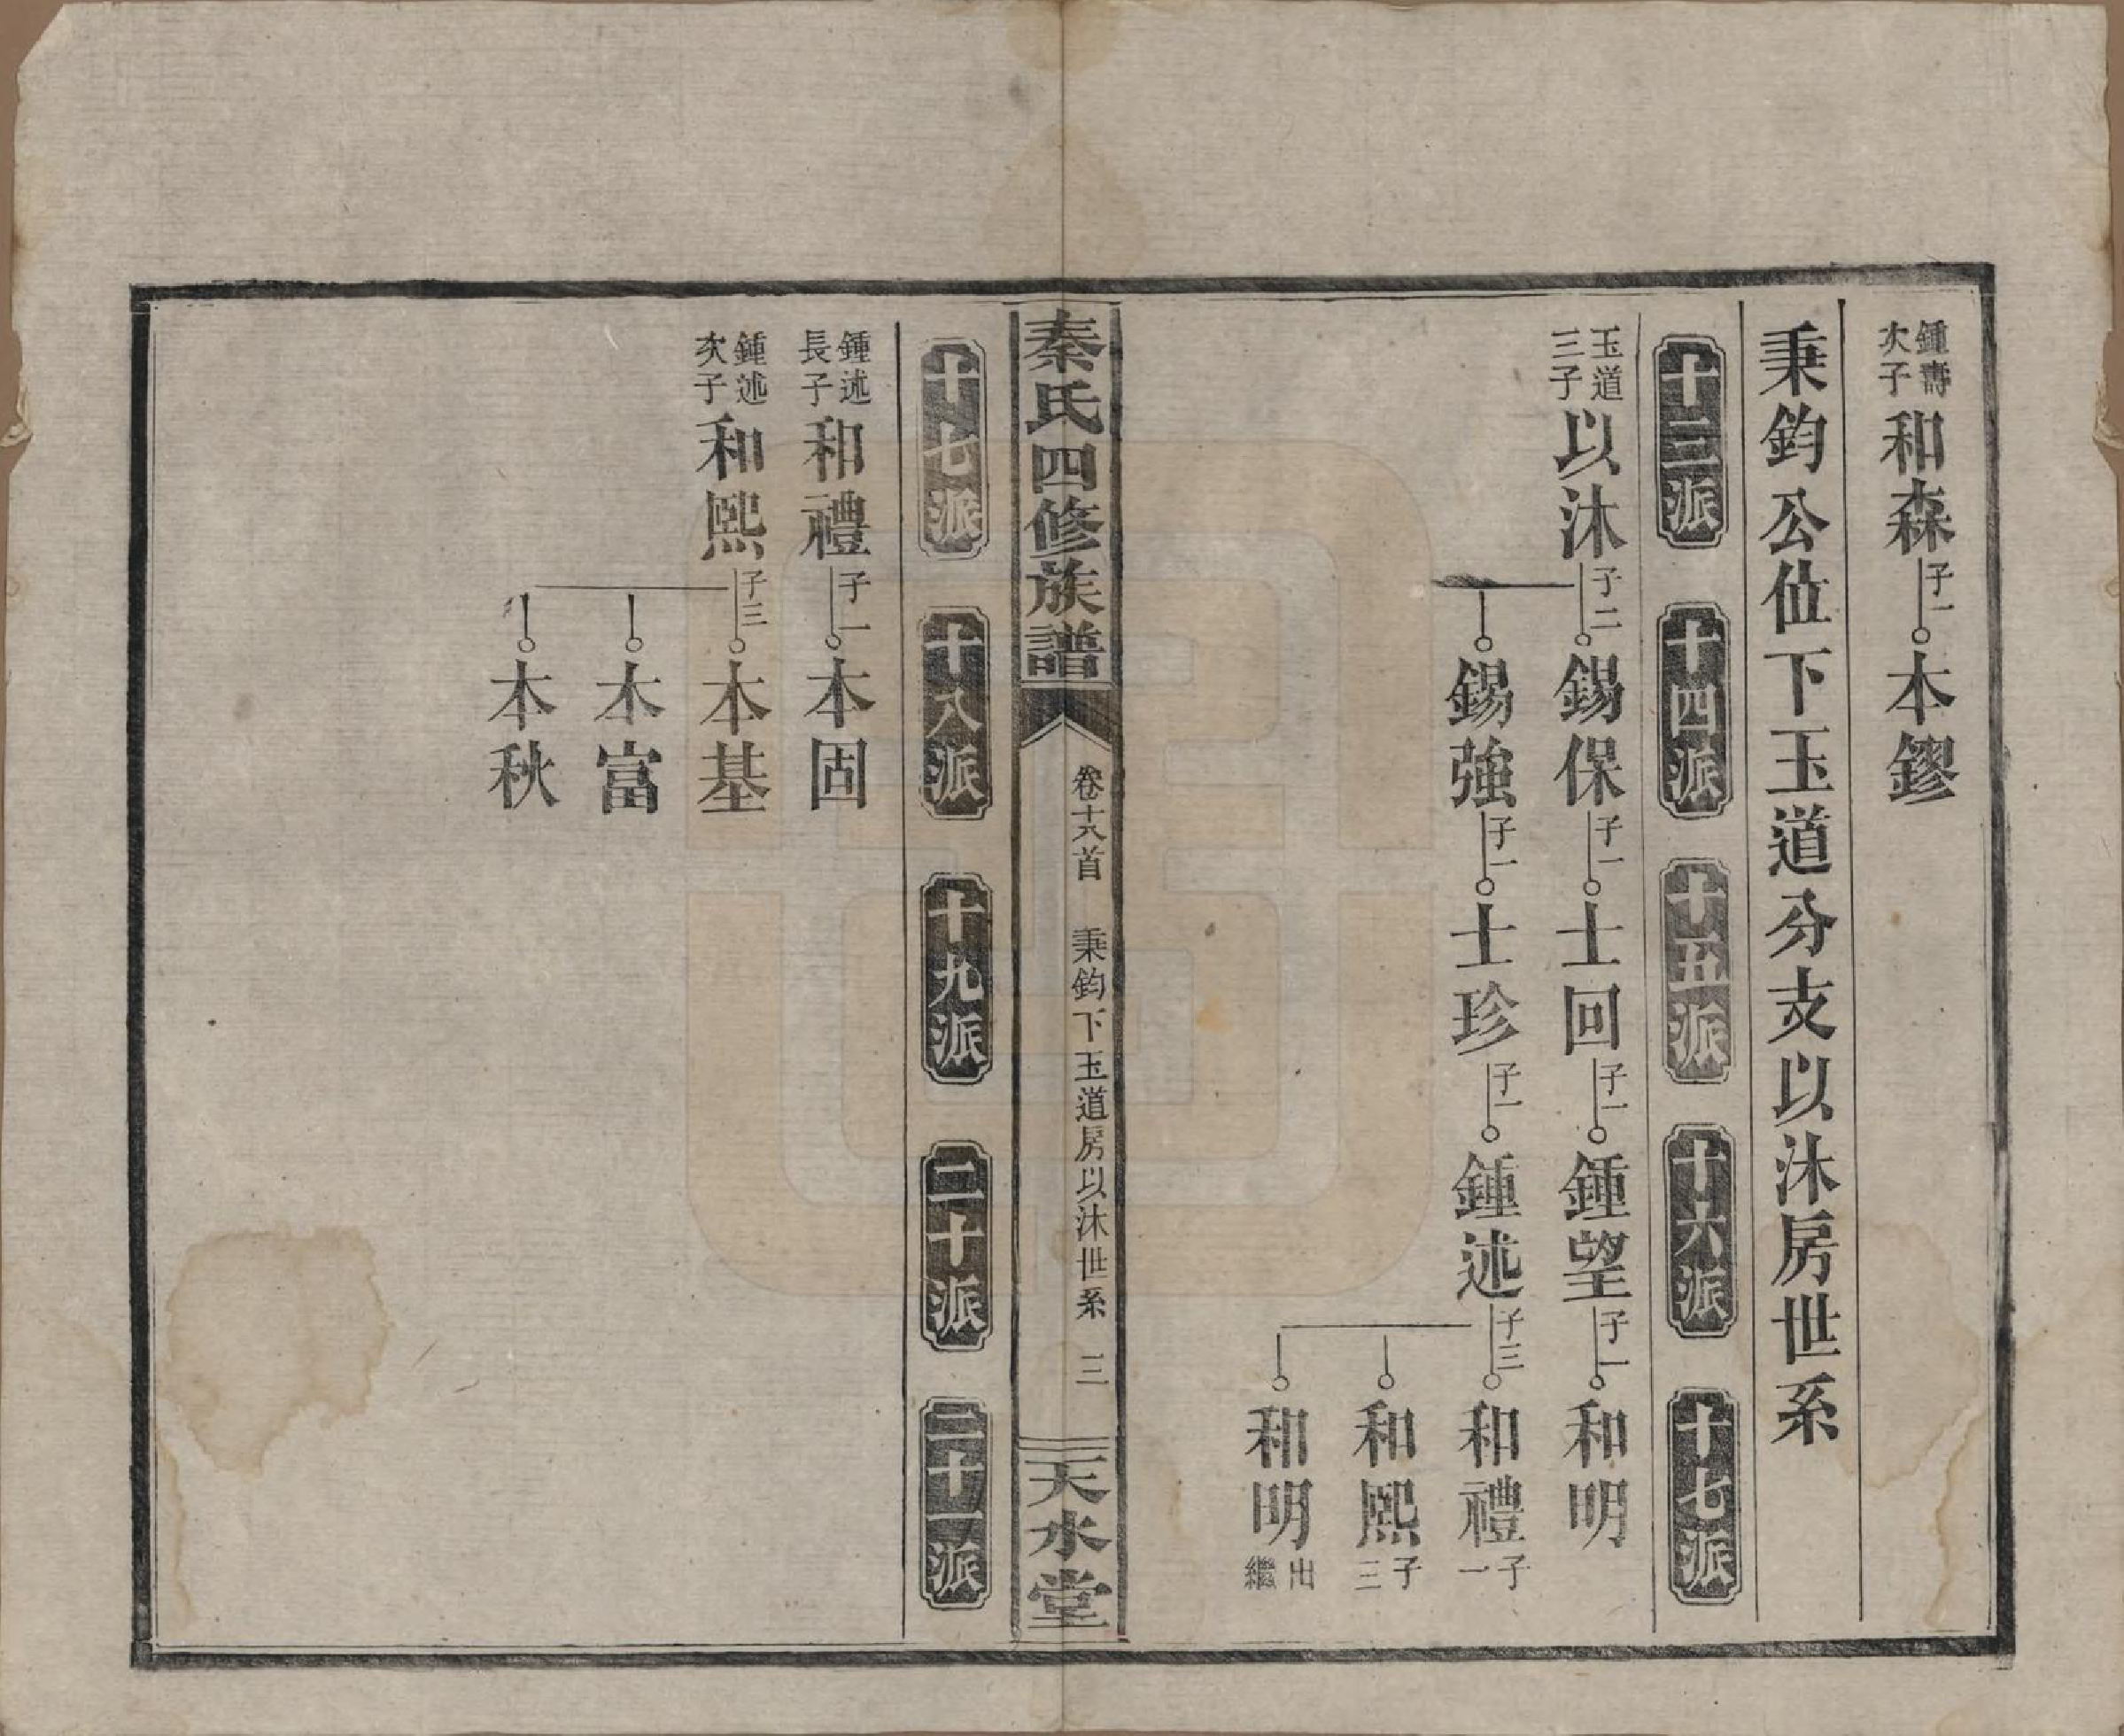 鍾壽次子和森子一本鏐
秉鈞公位下玉道分支以沐房世系
十三派 十四派 十五派 十六派 十七派
玉道三子以沐子二錫保子一士回子一鍾望子一和明
錫強子一士珍子一鍾述子三和禮子一
和熙子三
和明出繼
秦氏四修族譜 卷十六首 秉鈞下玉道房以沐世系 三 天水堂
十七派 十八派 十九派 二十派 二十一派
鍾述長子和禮子一本固
鍾述次子和熙子三本基
本富
本秋